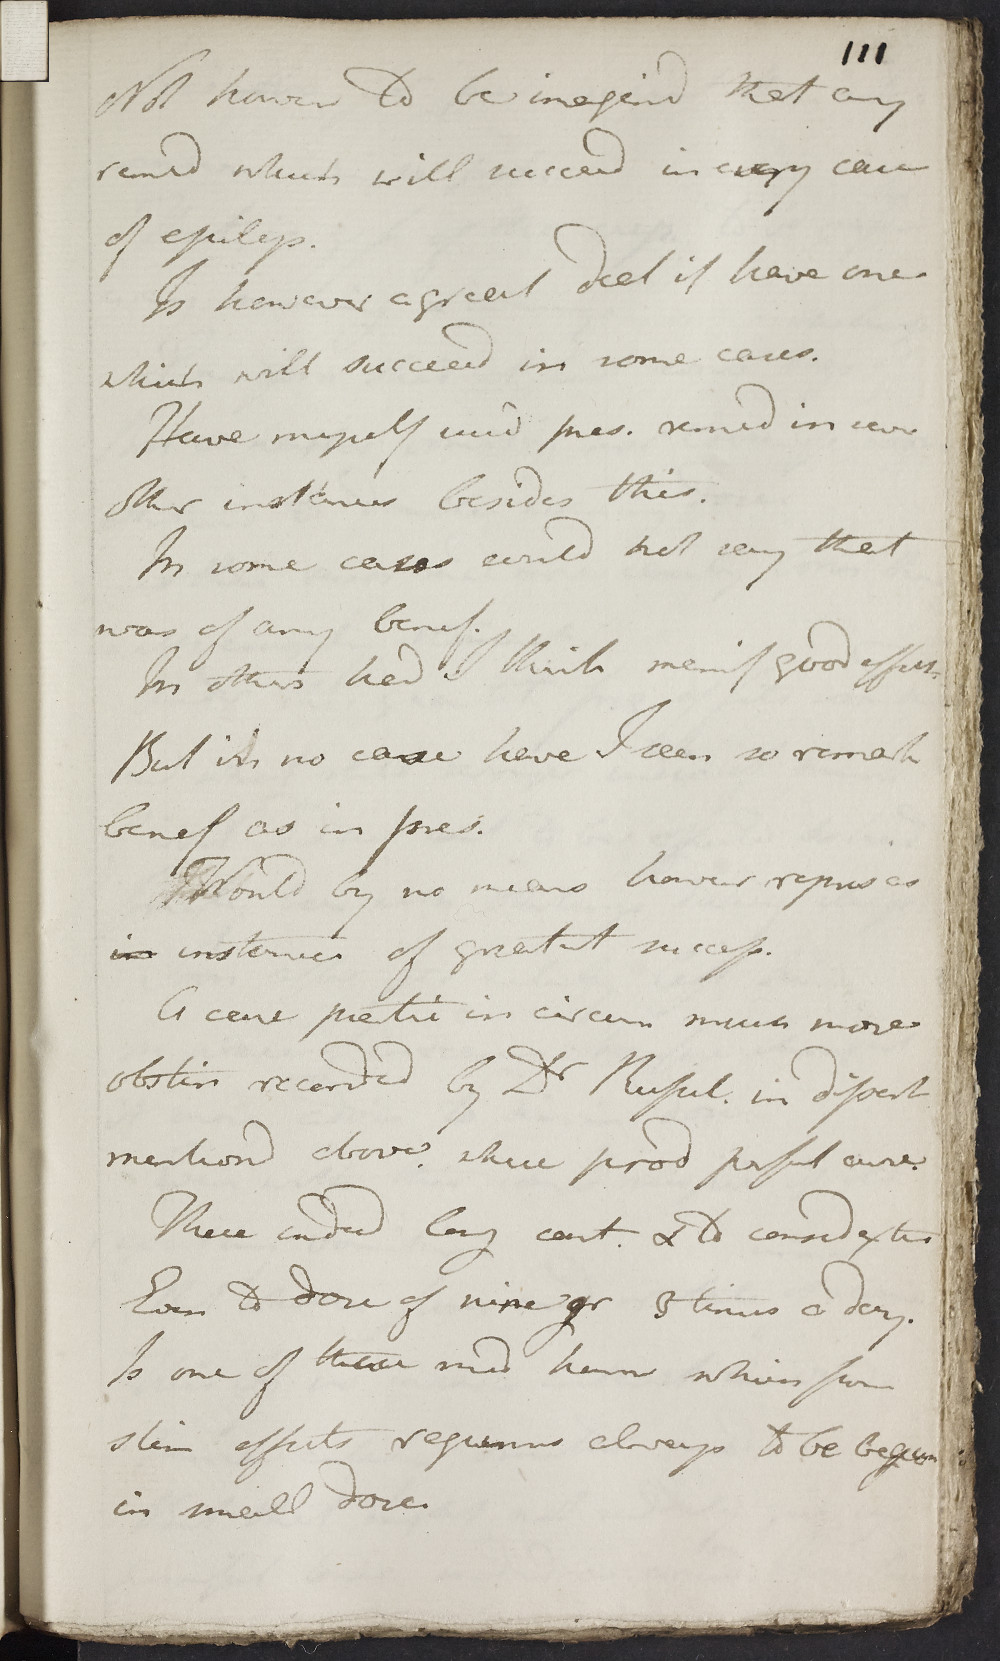 111
Not however to be imagind that any
remed which will succeed in every case
of epileps.
Is however a great deal if have one
which will succeed in some cases.
Have myself used pres. remed in sev
other instances besides this.
In some cases could not say that
was of any benef.
In others had I think manif good effects
But in no case have I seen so remark
benef as in pres.
Would by no means however repres as
instance of greatest success.
A case partic in circum much more
obstin recorded by Dr in dissert
mentiond above. where prod perfect cure.
There indeed long cont. & to consid extent
Even to dose of nine gr 3 times a day.
Is one of these med howev which from
stim effects requires always to be begun
in small dose.